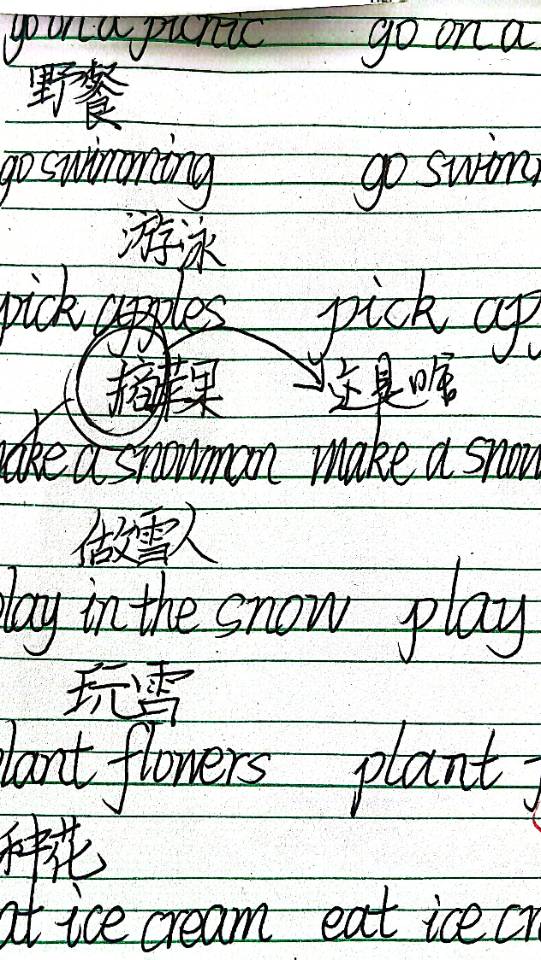 go on a picnic go on a
野餐
go swimming go swimm
游泳
pick apples pick app
摘苹果 这是啥
make a snowman make a snow
做雪人
play in the snow play
玩雪
plant flowers plant f
种花
eat ice cream eat ice cr